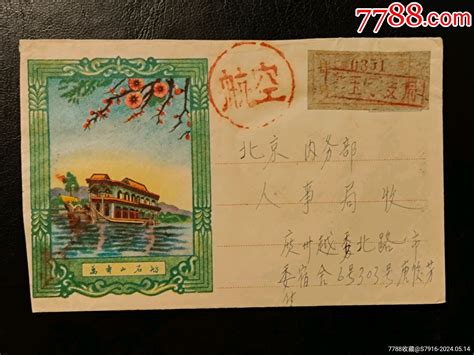 7788.com
0351
航空
北京 内务部
人事局收
广州越秀北路 市
委宿舍6号303号
万寿山石舫
7788收藏@S7916-2024.05.14